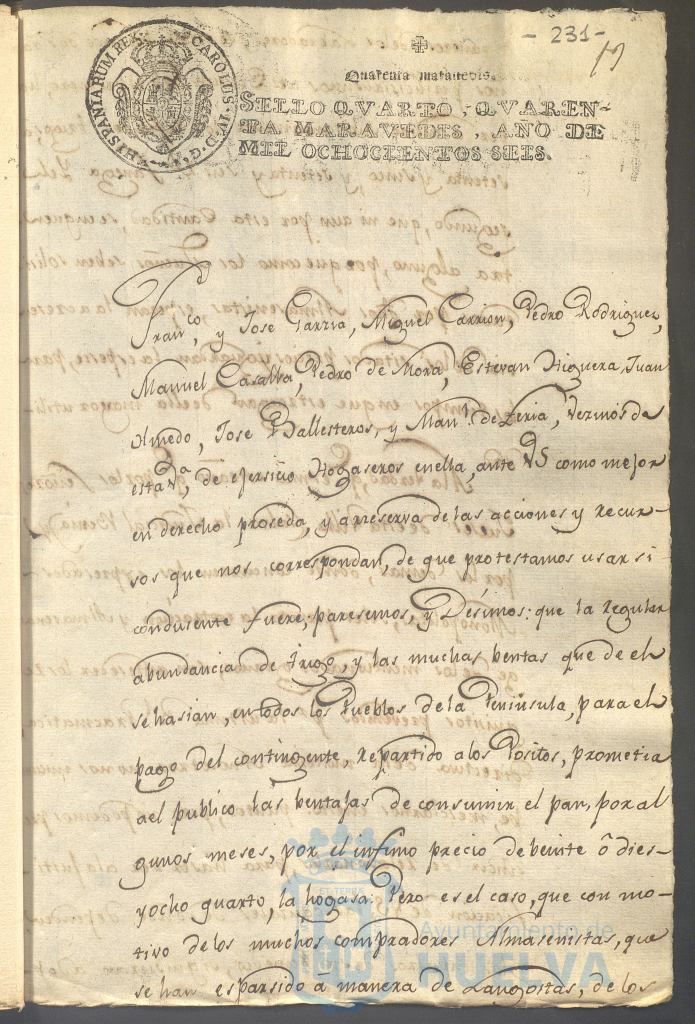 - 231 -
19
HISPANIARUM REX CAROLUS IV D G
Quarenta maravedis.
SELLO QVARTO, QVAREN-
TA MARAVEDIS, AÑO DE
MIL OCHOCIENTOS SEIS.
Franco, y Jose Garzia, Miguel Carrion, Pedro Rodriguez,
Manuel Casalba, Pedro de Mora, Estevan Higuera, Juan
Olmedo, Jose Ballesteros, y Manl. de Feria, Vezinos de
esta Va, de ejersisio Hogaseros en ella, ante VS como mejor
en derecho proseda, y a rreserva de las acciones y recur-
sos que nos correspondan, de que protestamos usar si
condusente fuere; paresemos, y Desimos: que la regular
abundancia de trigo, y las muchas bentas que de el
se hasian, en todos los Pueblos de la Peninsula, para el
pago del contingente, repartido a los Positos, prometia
a el publico las bentajas de consumir el pan, por al
gunos meses, por el infimo precio de beinte ô dies-
yocho quarto, la hogasa: Pero es el caso, que con mo-
tivo de los muchos compradores Almasenistas, que
se han esparsido â manera de Langostas, de los
Ayuntamiento de
HUELVA